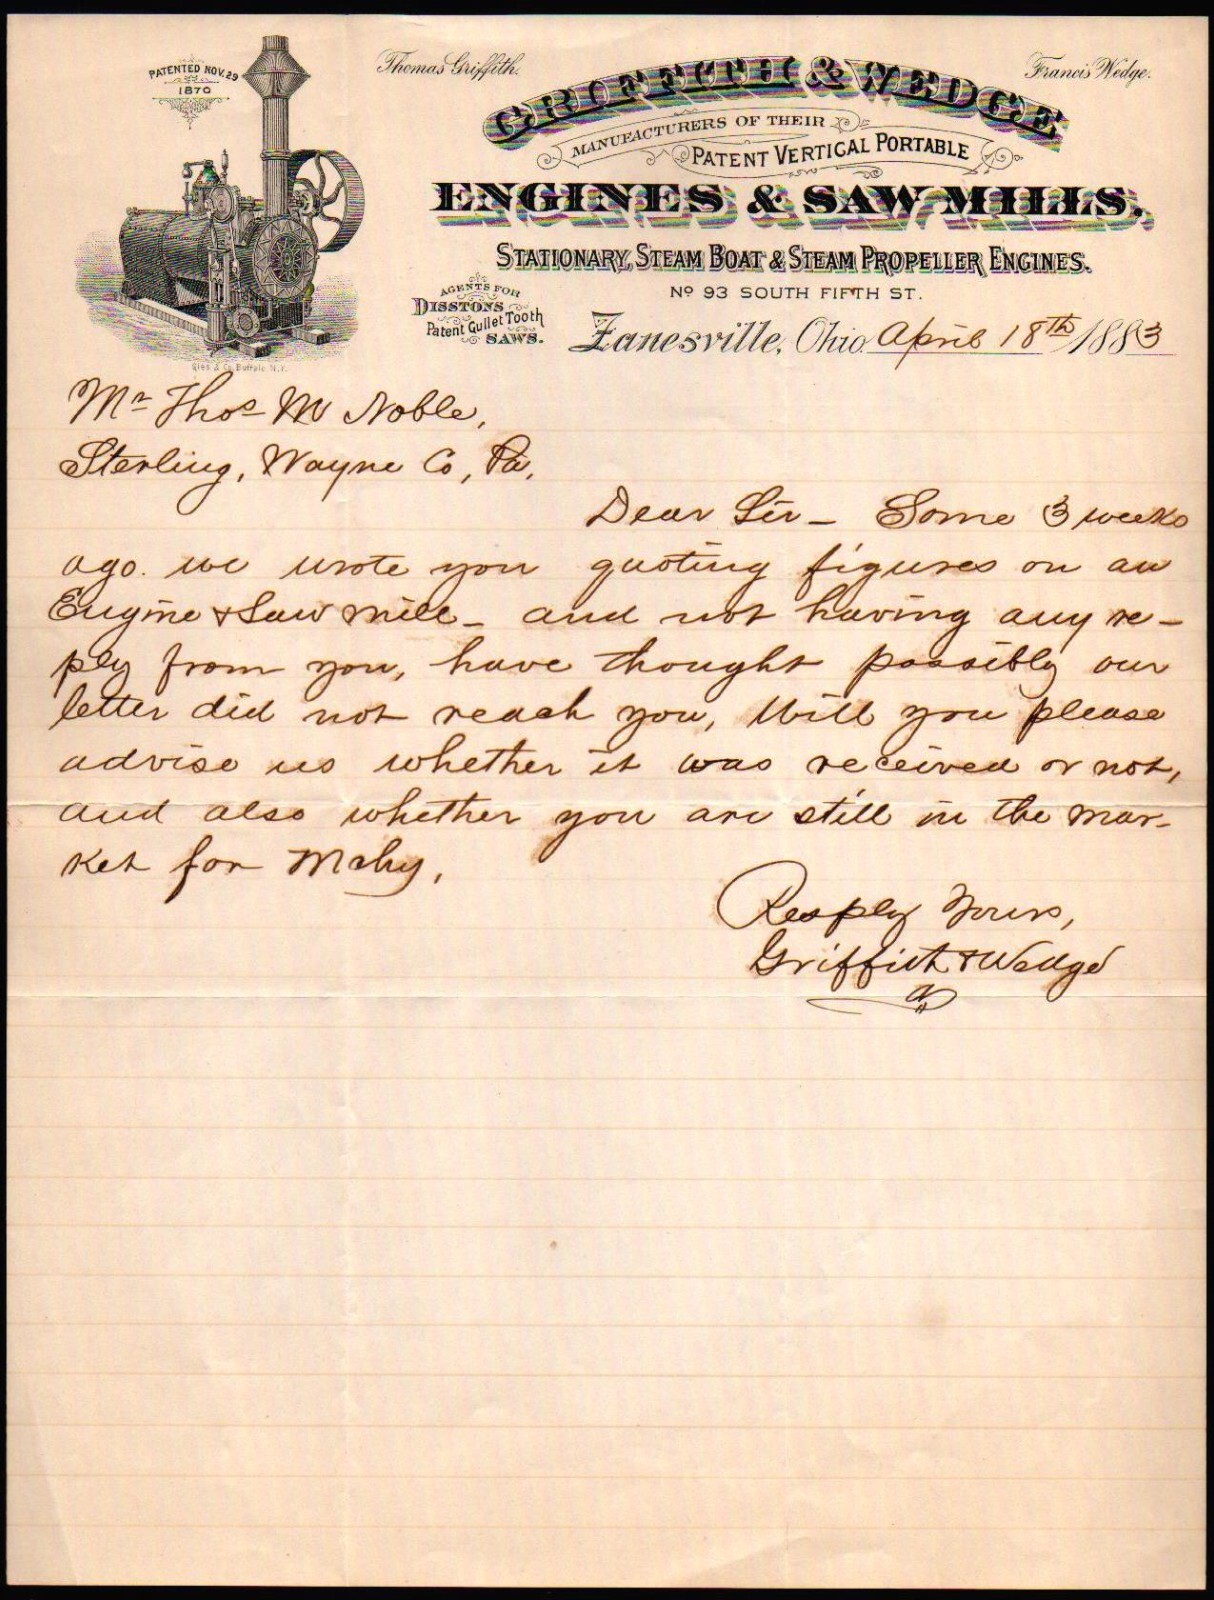 PATENTED NOV. 29
1870
Thomas Griffith.
Francis Wedge.
GRIFFITH & WEDGE
MANUFACTURERS OF THEIR
PATENT VERTICAL PORTABLE
ENGINES & SAW MILLS.
STATIONARY, STEAM BOAT & STEAM PROPELLER ENGINES.
No 93 SOUTH FIFTH ST.
AGENTS FOR
DISSTONS
Patent Gullet Tooth
SAWS.
Zanesville, Ohio April 18th 1883
Gies & Co. Buffalo N.Y.
Mr Thos M Noble,
Sterling, Wayne Co, Pa,
Dear Sir - Some 3 weeks
ago. we wrote you quoting figures on an
Engine & Saw mill - and not having any re-
ply from you, have thought possibly our
letter did not reach you, Will you please
advise us whether it was received or not,
and also whether you are still in the mar-
ket for Mchy,
Resply Yours,
Griffith & Wedge